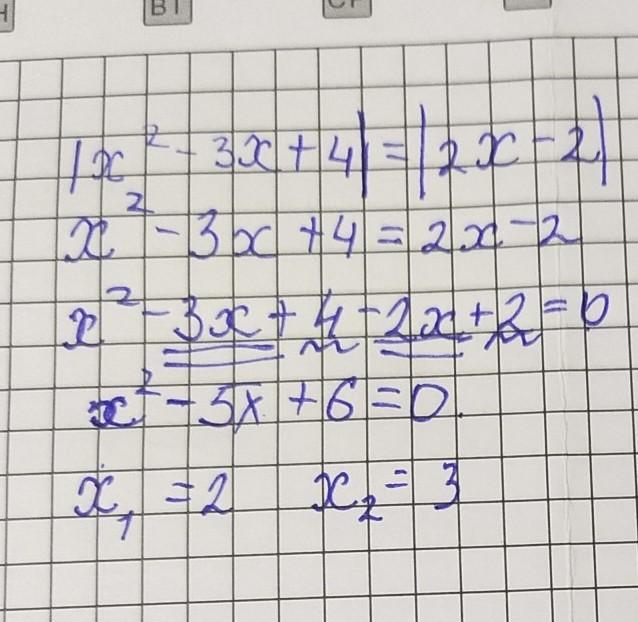 |x² - 3x + 4| = |2x - 2|
x² - 3x + 4 = 2x - 2
x² - 3x + 4 - 2x + 2 = 0
x² - 5x + 6 = 0.
x₁ = 2 x₂ = 3